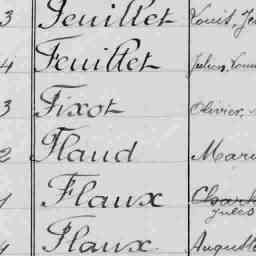 3 Feuillet Louis, Je
4 Feuillet Julien, Loui
3 Fixot Olivier,
2 Flaud Mari
1 Flaux Charl
Jules
4 Flaux Auguste